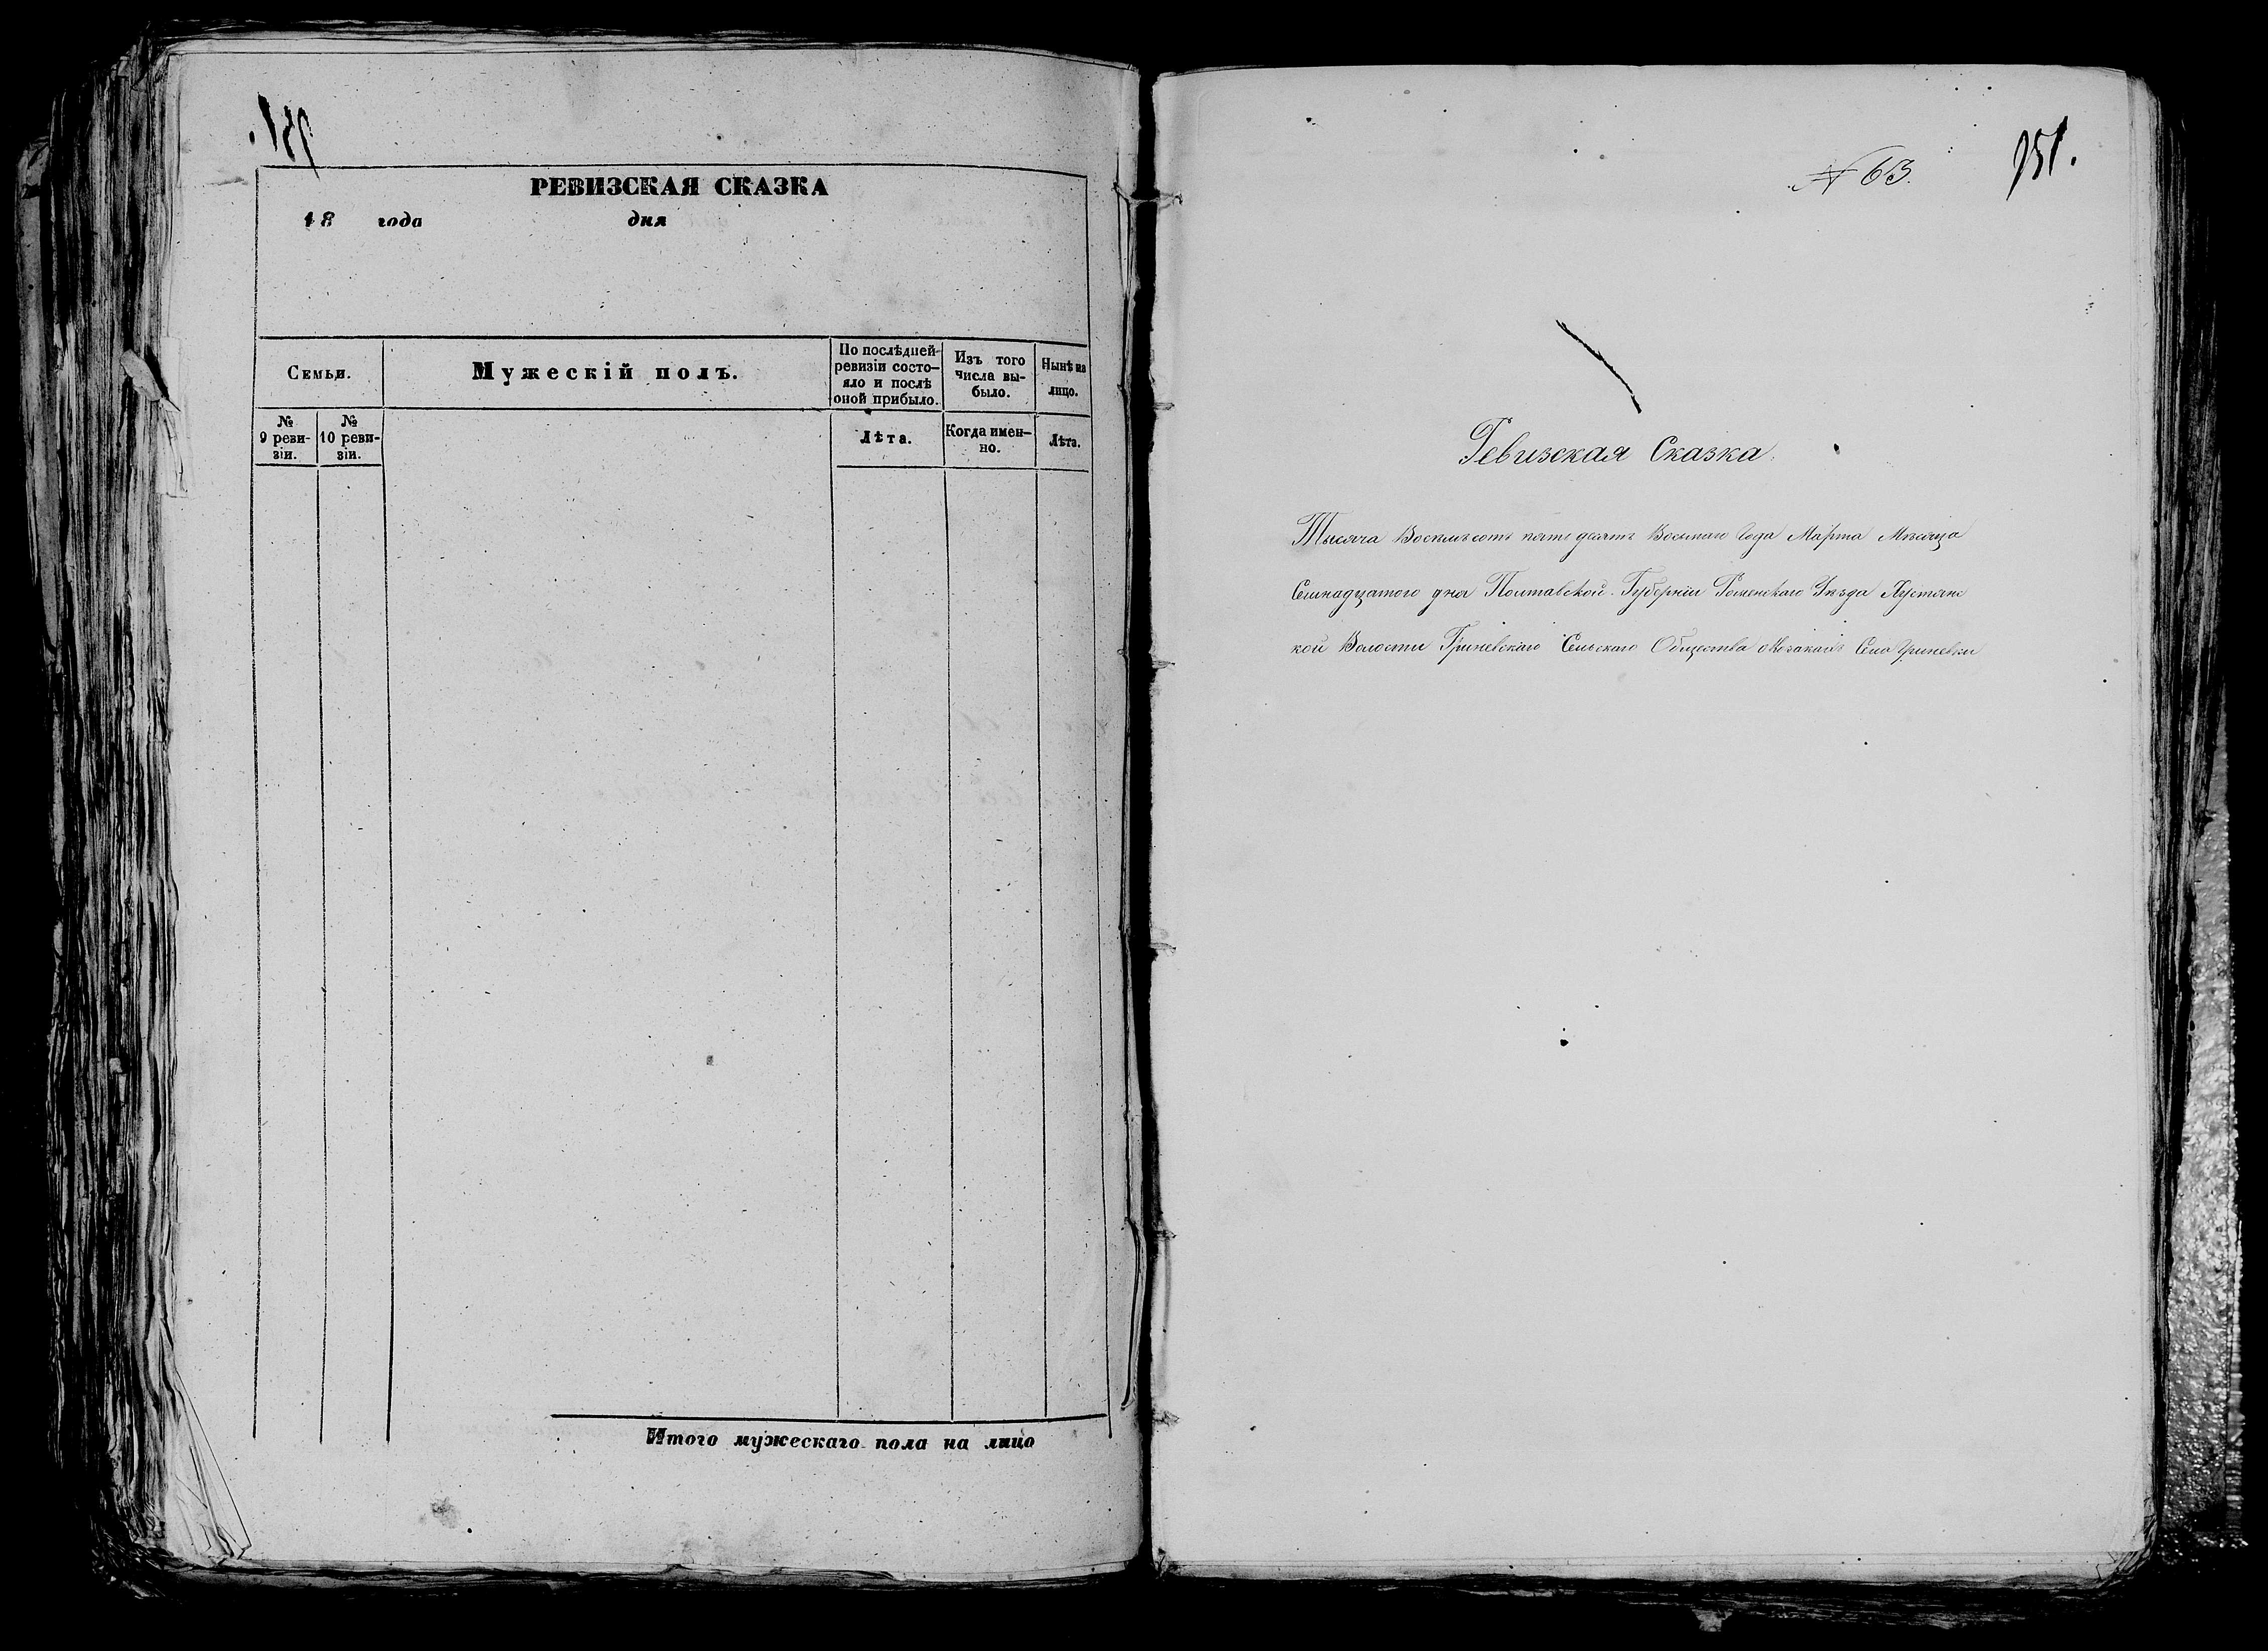 РЕВИЗСКАЯ СКАЗКА
18 года дня
Семьи.
Мужескій полъ.
По послѣдней
ревизіи состо-
яло и послѣ
оной прибыло.
Изъ того
числа вы-
было.
Нынѣ на
лицо.
№
9 реви-
зіи.
№
10 реви-
зіи.
Лѣта.
Когда имен-
но.
Лѣта.
Итого мужескаго пола на лицо
№ 63.
951.
Ревизская Сказка.
Тысяча Восемьсотъ пятьдесятъ Восьмаго Года Марта Мѣсяца
Семнадцатого дня Полтавской Губерніи Роменскаго Уѣзда Хустянс
кой Волости Гриневскаго Сельскаго Общества о Козакахъ Села Гриневки